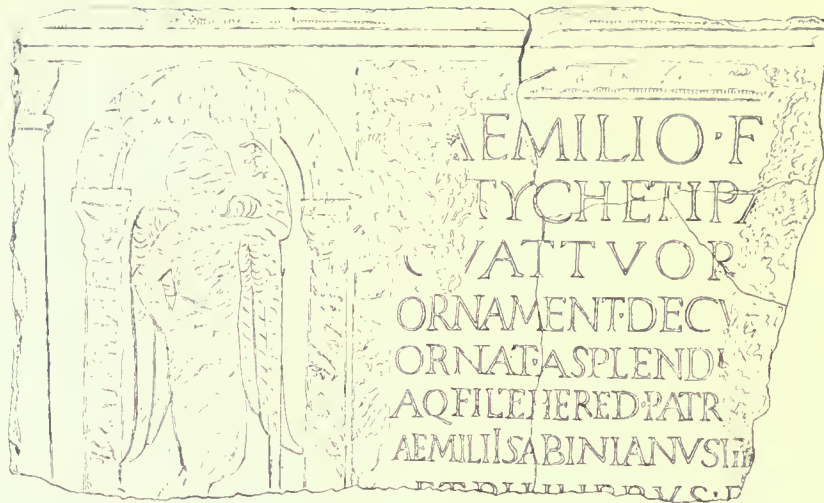 AEMILIO·F
TYCHETI PA
VATTVOR
ORNAMENT·DECV
ORNAT·A SPLENDI
AQ FIL·E HERED·PATR
AEMILII SABINIANVS